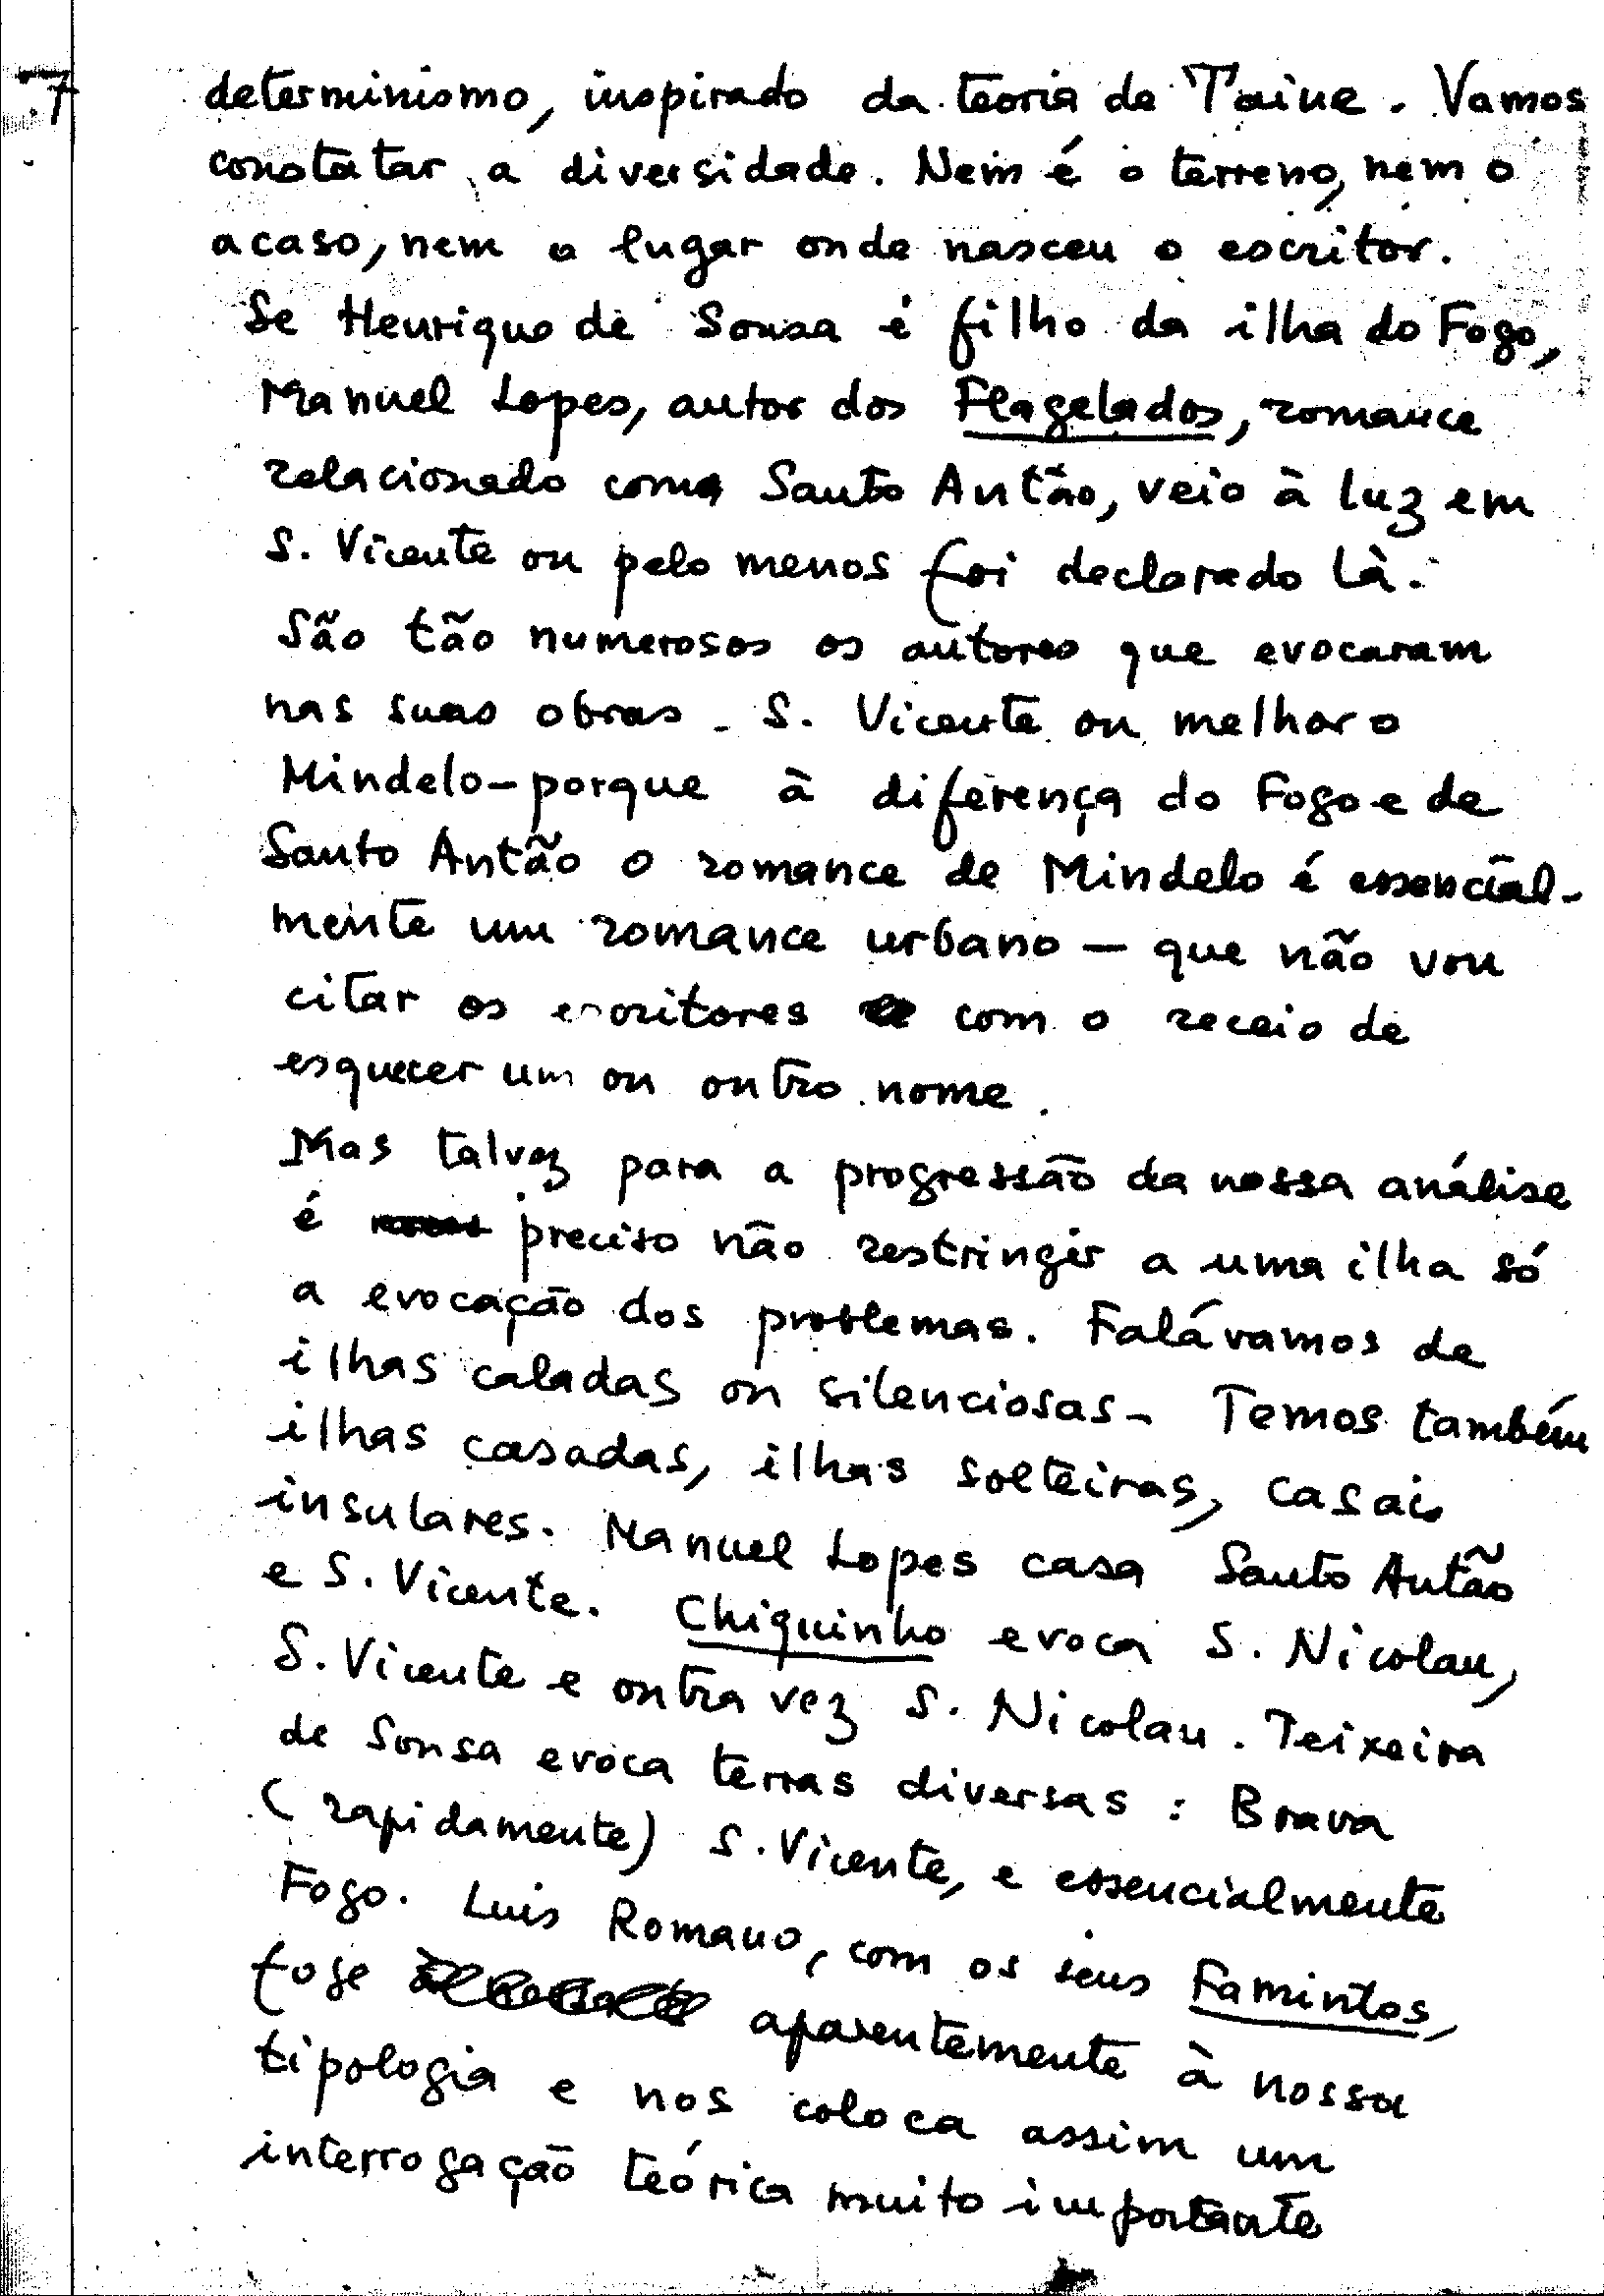 7
determinismo, inspirado da teoria de Taine. Vamos
constatar a diversidade. Nem é o terreno, nem o
acaso, nem o lugar onde nasceu o escritor.
Se Henrique de Sousa é filho da ilha do Fogo,
Manuel Lopes, autor dos Flagelados, romance
relacionado com Santo Antão, veio à luz em
S. Vicente ou pelo menos foi declarado là.
São tão numerosos os autores que evocaram
nas suas obras - S. Vicente ou melhor o
Mindelo - porque à diferença do Fogo e de
Santo Antão o romance de Mindelo é essencial-
mente um romance urbano - que não vou
citar os escritores com o receio de
esquecer um ou outro nome.
Mas talvez para a progressão da nossa análise
é preciso não restringir a uma ilha só
a evocação dos problemas. Falávamos de
ilhas caladas ou silenciosas - Temos também
ilhas casadas, ilhas solteiras, casais
insulares. Manuel Lopes casa Santo Antão
e S. Vicente. Chiquinho evoca S. Nicolau,
S. Vicente e outra vez S. Nicolau. Teixeira
de Sousa evoca terras diversas : Brava
(rapidamente) S. Vicente, e essencialmente
Fogo. Luis Romano, com os seus Famintos,
foge aparentemente à nossa
tipologia e nos coloca assim um
interrogação teórica muito importante